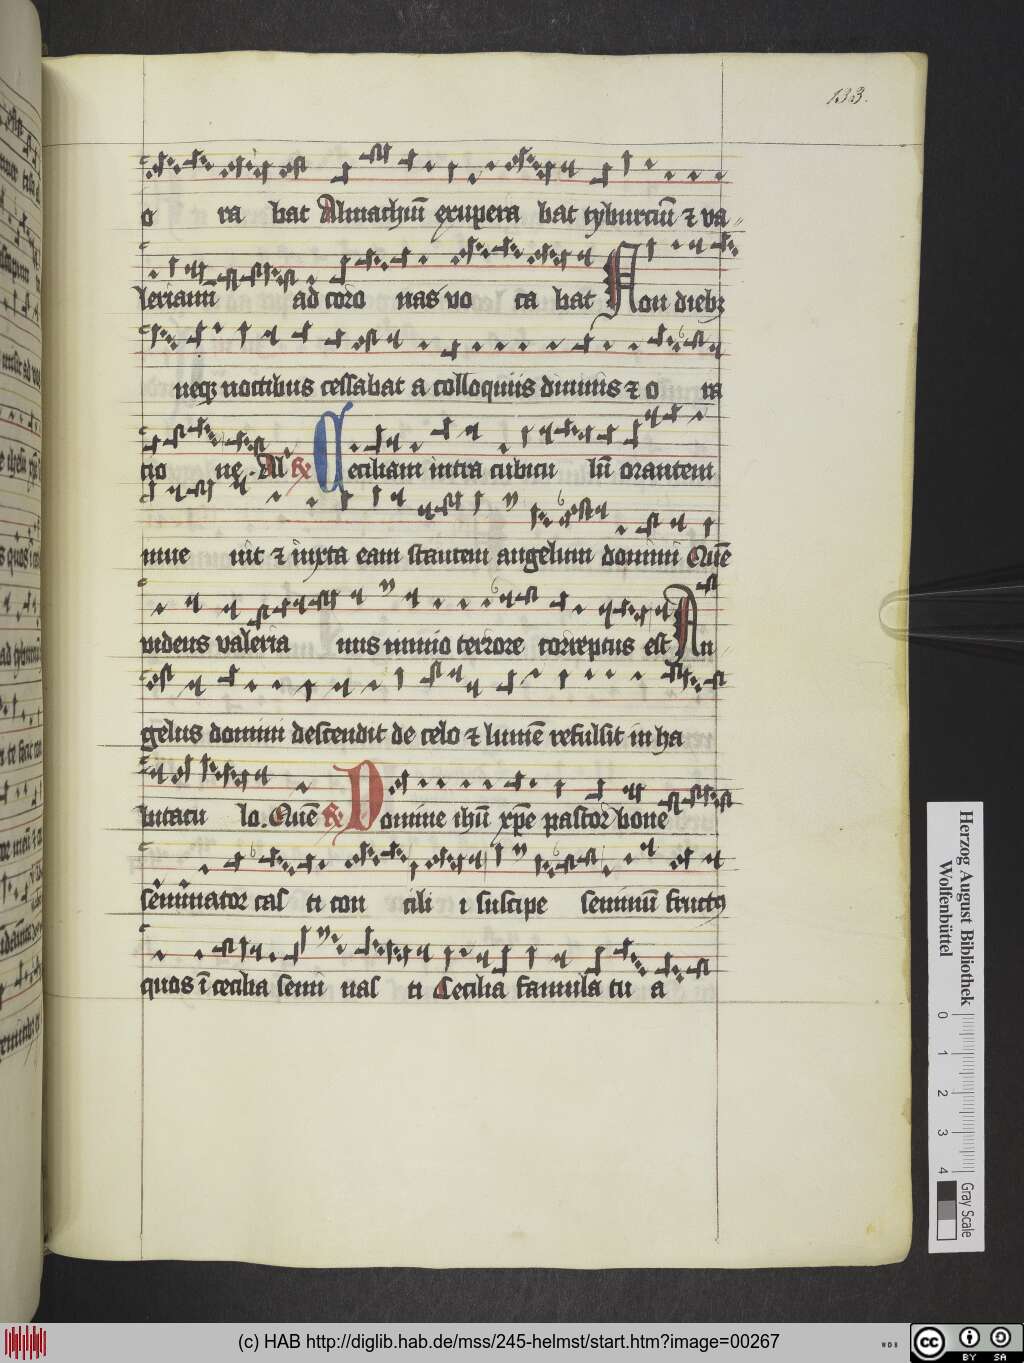 133.
o ra bat Almachiū exupera bat tyburciū ⁊ va
lerianū ad coro nas vo ca bat Non diebȝ
neqȝ noctibus cessabat a colloquiis diuinis ⁊ o ra
cio ne. Al R̄ Ceciliam intra cubicu lū orantem
inue nit ⁊ iuxta eam stantem angelum domini Quē
videns valeria nus nimio terrore correptus est An
gelus domini descendit de celo ⁊ lumē refulsit in ha
bitacu lo. Quē R̄ Domine ihū xp̄e pastor bone
seminator cas ti con cili i suscipe seminū fructꝰ
quos ī cecilia semi nas ti Cecilia famula tu a
Herzog August Bibliothek
Wolfenbüttel
0 1 2 3 4
Gray Scale
(c) HAB http://diglib.hab.de/mss/245-helmst/start.htm?image=00267
WDB
cc BY SA